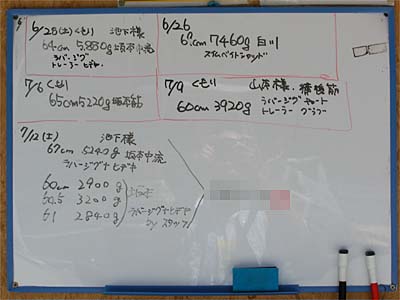 6/28(土)くもり 池下様
64cm 5880g 坂本中流
ラバージグ
トレーラー ヒデヤ
6/26
6 cm 7460g 白川
スイムベイトシャッド
7/6 くもり
65cm 5220g 坂本筋
7/9 くもり 山本様
60cm 3920g
ラバージグ チャート
トレーラー グラブ
7/12(土) 池下様
67cm 5240g 坂本中流
ラバージグ ヒデヤ
60cm 2900g
60.5 3200g
61 2840g
ラバージグ ヒデヤ
by スタッフ